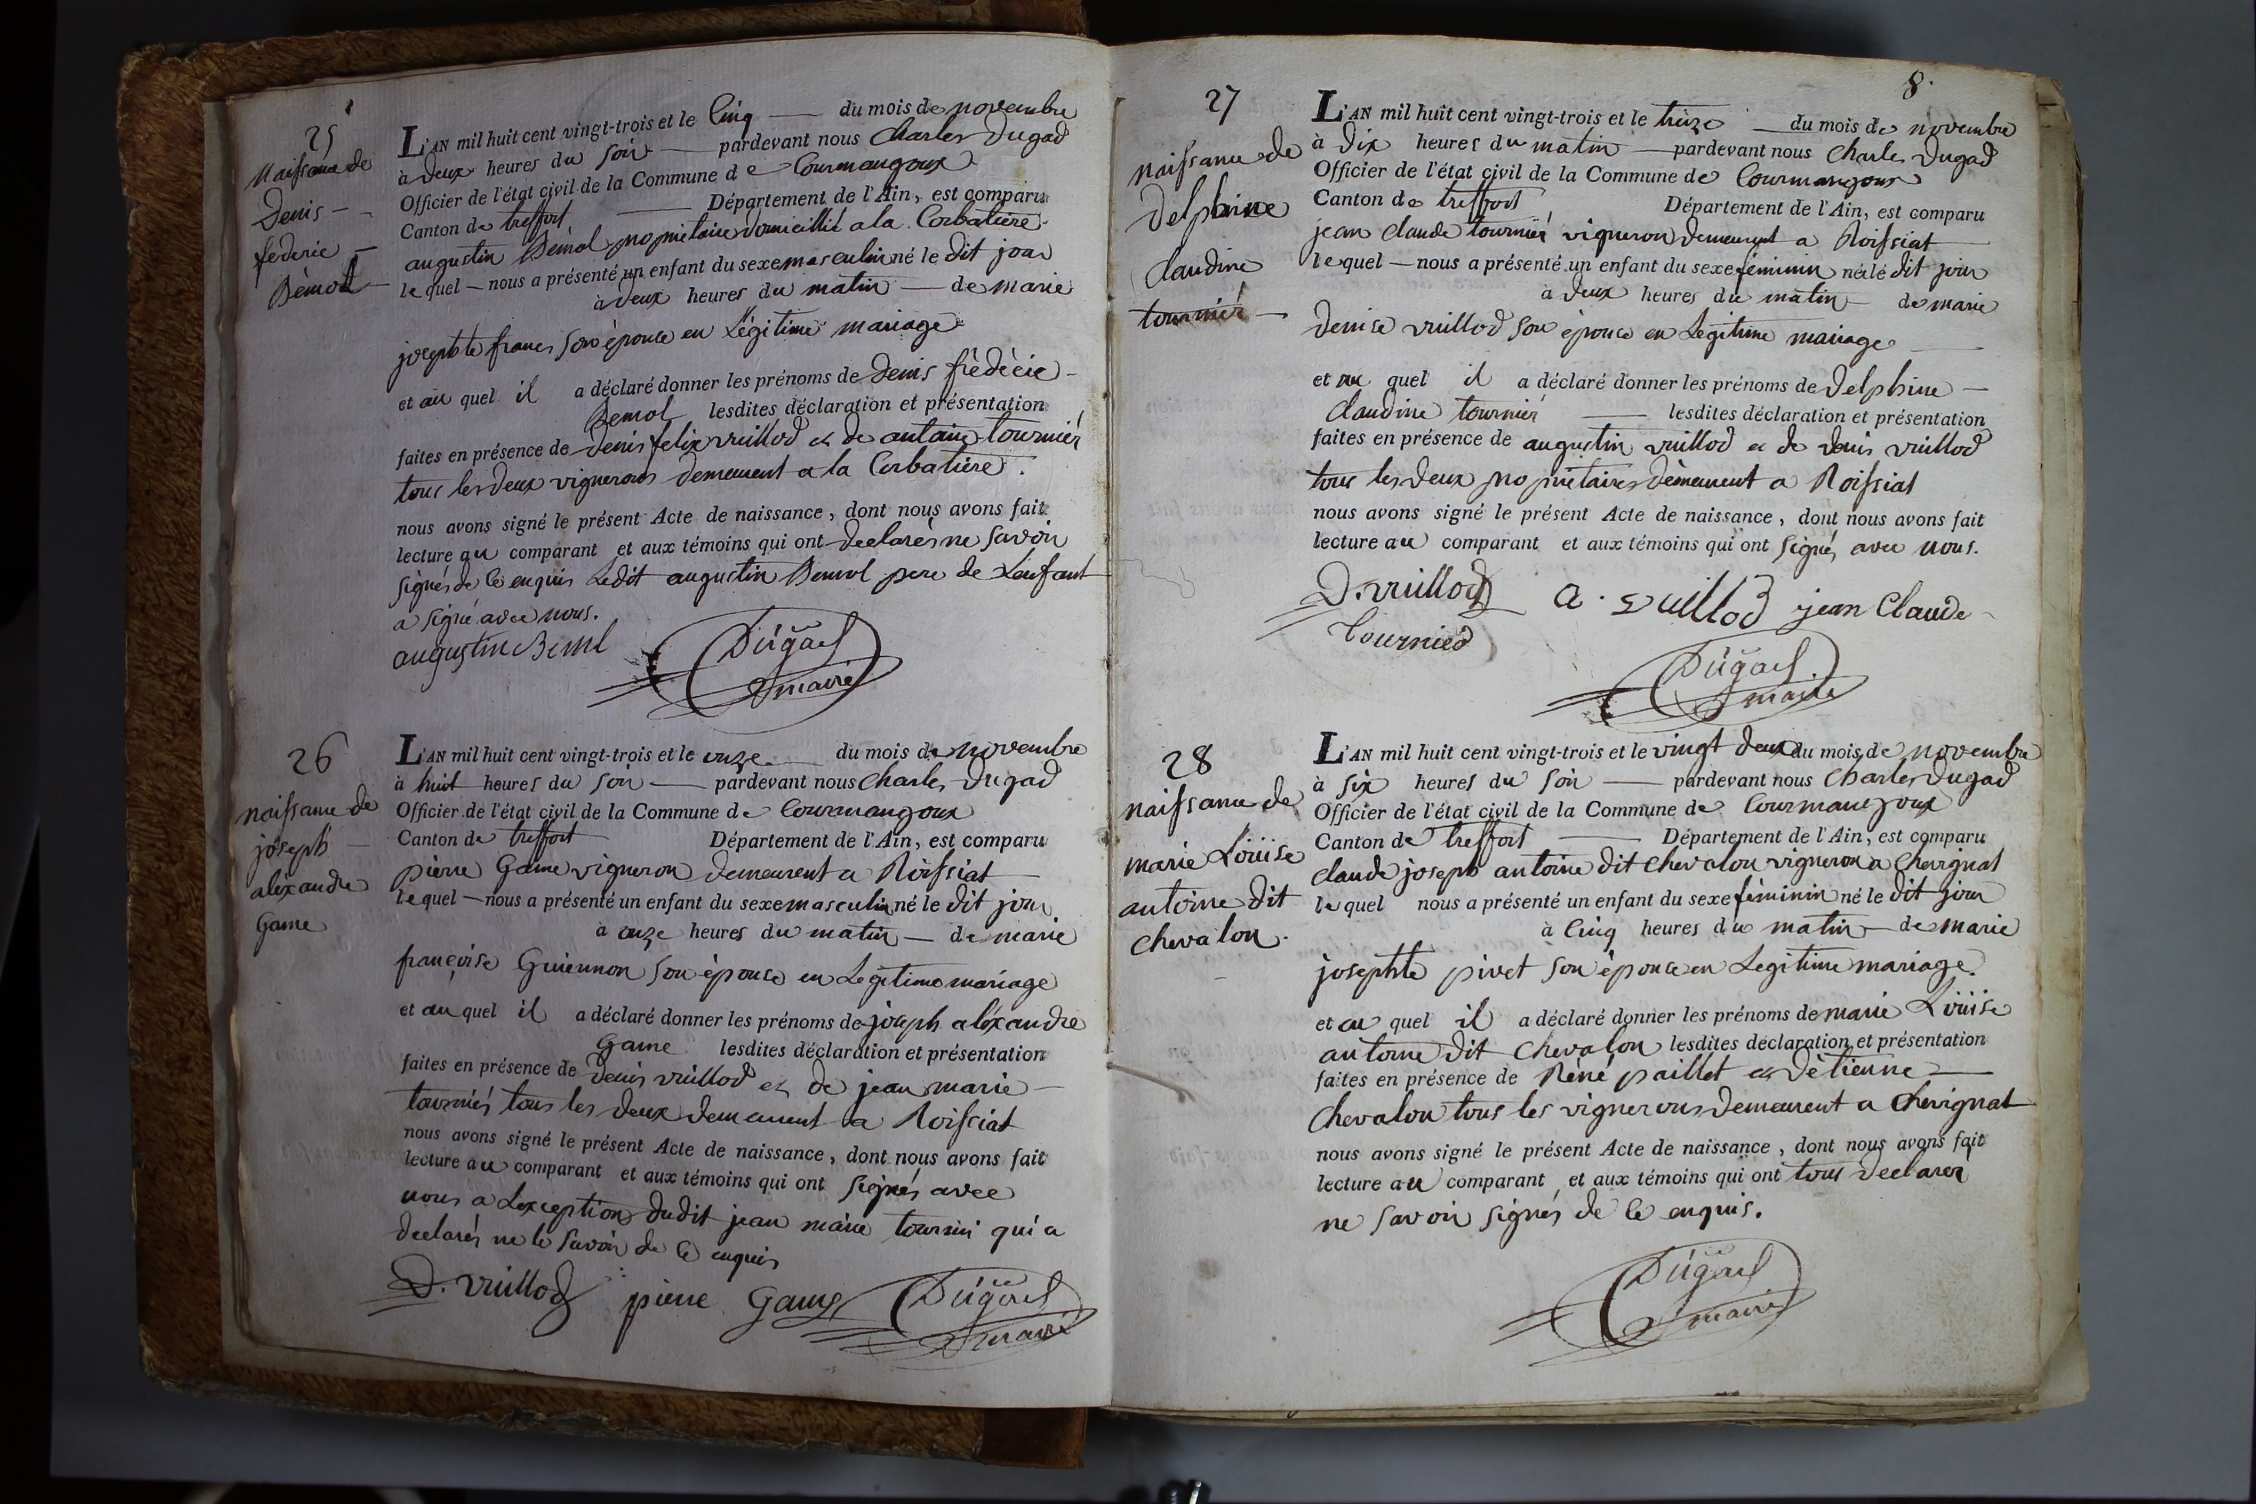 25
Naissance de
Denis
féderic
Bémol
L'AN mil huit cent vingt-trois et le Cinq du mois de novembre
à deux heures du soir pardevant nous Charles Dugad
Officier de l'état civil de la Commune de Courmangoux
Canton de treffort Département de l'Ain, est comparu
augustin Bémol propriétaire domicillié a la Corbatière
lequel nous a présenté un enfant du sexe masculin né le dit jour
à deux heures du matin de marie
josephte franc son épouse en Légitime mariage
et au quel il a déclaré donner les prénoms de Denis frédéric
Bemol lesdites déclaration et présentation
faites en présence de denis felix vuillod et de antoine tournier
tous les deux vignerons demeurent a la Corbatière.
nous avons signé le présent Acte de naissance, dont nous avons fait
lecture au comparant et aux témoins qui ont declarés ne savoir
signés de ce enquis Ledit augustin Bemol pere de Lenfant
a signé avec nous.
augustin Beml
Dugad
maire
26
naissance de
joseph
aléxandre
Game
L'AN mil huit cent vingt-trois et le onze du mois de novembre
à huit heures du soir pardevant nous Charles Dugad
Officier de l'état civil de la Commune de Courmangoux
Canton de treffort Département de l'Ain, est comparu
pierre Game vigneron demeurent a Roissiat
lequel nous a présenté un enfant du sexe masculin né le dit jour
à onze heures du matin de marie
françoise Guiennon son épouse en Légitime mariage
et au quel il a déclaré donner les prénoms de joseph aléxandre
Game lesdites déclaration et présentation
faites en présence de denis vuillod et de jean marie
tourniér tous les deux demeurent a Roissiat
nous avons signé le présent Acte de naissance, dont nous avons fait
lecture au comparant et aux témoins qui ont signés avec
nous a Lexception dudit jean marie tournier qui a
declarés ne le savoir de ce enquis
D. vuillod pierre Game Dugad
maire
8.
27
naissance de
delphine
claudine
tourniér
L'AN mil huit cent vingt-trois et le treize du mois de novembre
à dix heures du matin pardevant nous Charles Dugad
Officier de l'état civil de la Commune de Courmangoux
Canton de treffort Département de l'Ain, est comparu
jean claude tourniér vigneron demeurent a Roissiat
lequel nous a présenté un enfant du sexe féminin né le dit jour
à deux heures du matin de marie
denise vuillod son épouse en Légitime mariage
et au quel il a déclaré donner les prénoms de delphine
claudine tourniér lesdites déclaration et présentation
faites en présence de augustin vuillod et de denis vuillod
tous les deux propriétaires demeurent a Roissiat
nous avons signé le présent Acte de naissance, dont nous avons fait
lecture au comparant et aux témoins qui ont signés avec nous.
D. vuillod a. vuillod jean Claude
tournier
Dugad
maire
28
naissance de
marie Loüise
antoine dit
chevalon.
L'AN mil huit cent vingt-trois et le vingt deux du mois de novembre
à six heures du soir pardevant nous Charles Dugad
Officier de l'état civil de la Commune de Courmangoux
Canton de treffort Département de l'Ain, est comparu
claude joseph antoine dit chevalon vigneron a chevignat
lequel nous a présenté un enfant du sexe féminin né le dit jour
à Cinq heures du matin de marie
josephte pivet son épouse en Légitime mariage.
et au quel il a déclaré donner les prénoms de marie Loüise
antoine dit chevalon lesdites déclaration et présentation
faites en présence de Réné paillet et détienne
chevalon tous les vignerons demeurent a chevignat
nous avons signé le présent Acte de naissance, dont nous avons fait
lecture au comparant et aux témoins qui ont tous declarer
ne savoir signés de ce enquis.
Dugad
maire